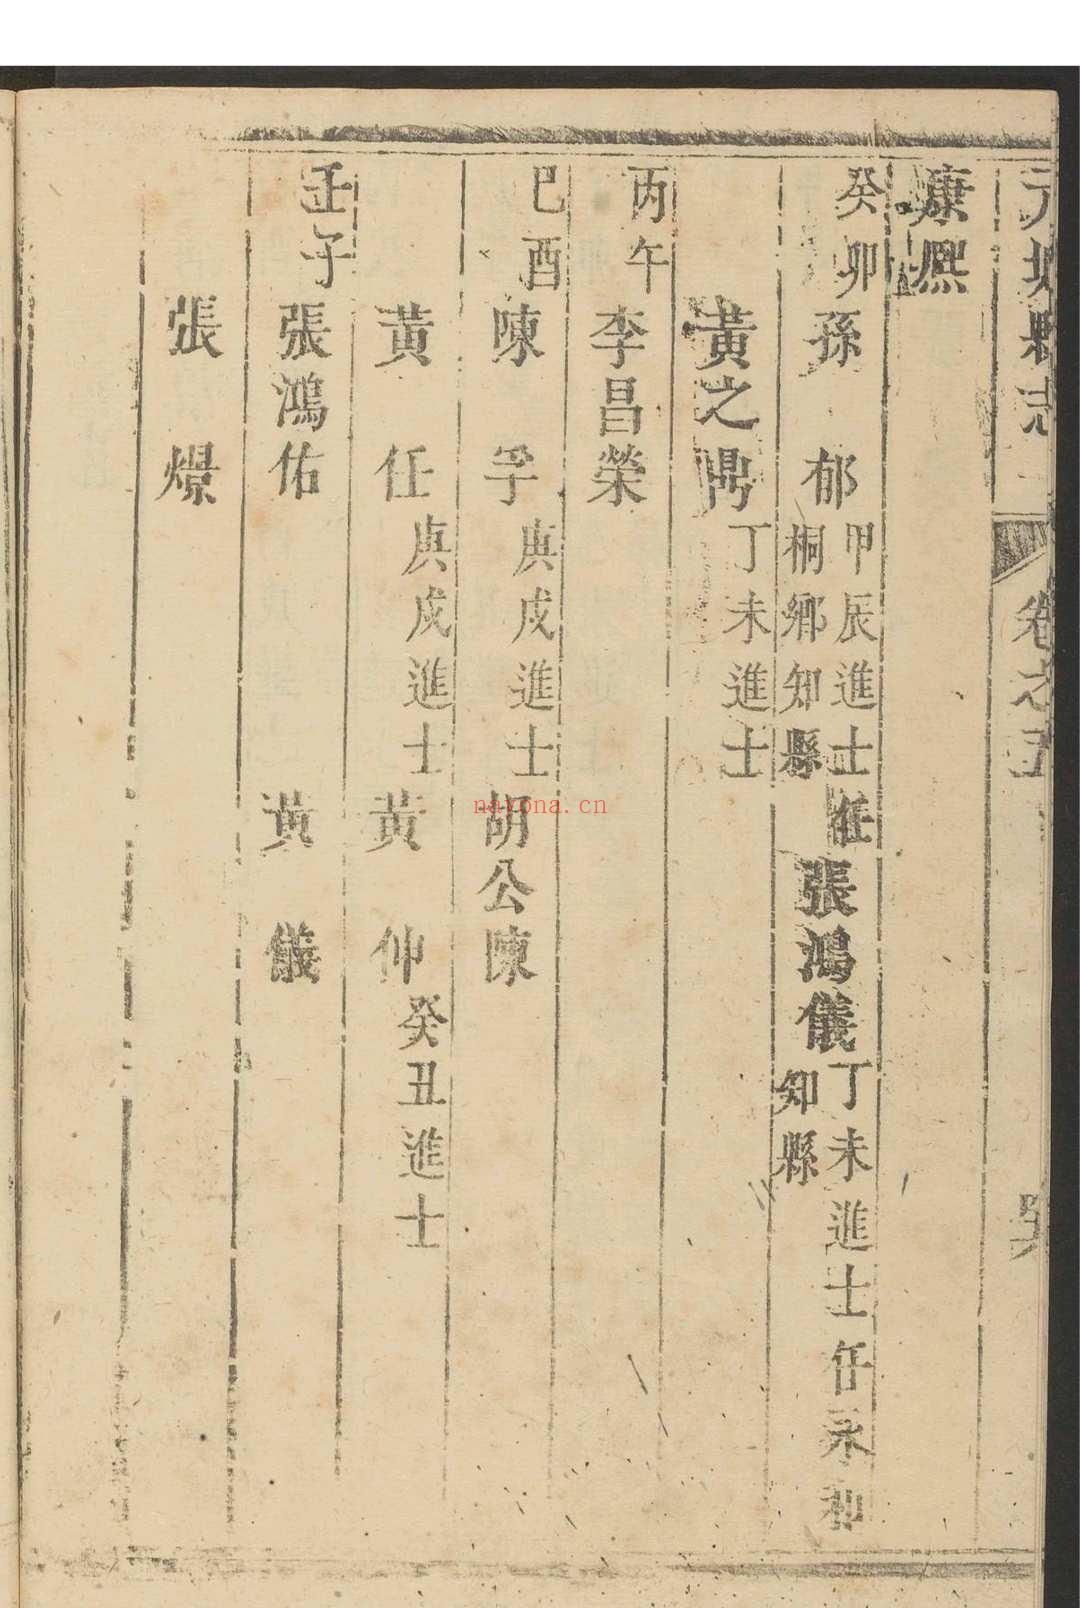 元城縣志
卷之五
康熙
癸卯 孫 郁 甲辰進士任桐鄉知縣 張鴻儀 丁未進士任永和知縣
黃之鼎 丁未進士
丙午 李昌榮
己酉 陳 孚 庚戌進士 胡公陳
黃 任 庚戌進士 黃 伸 癸丑進士
壬子 張鴻佑 黃 儀
張 燝
nayona.cn